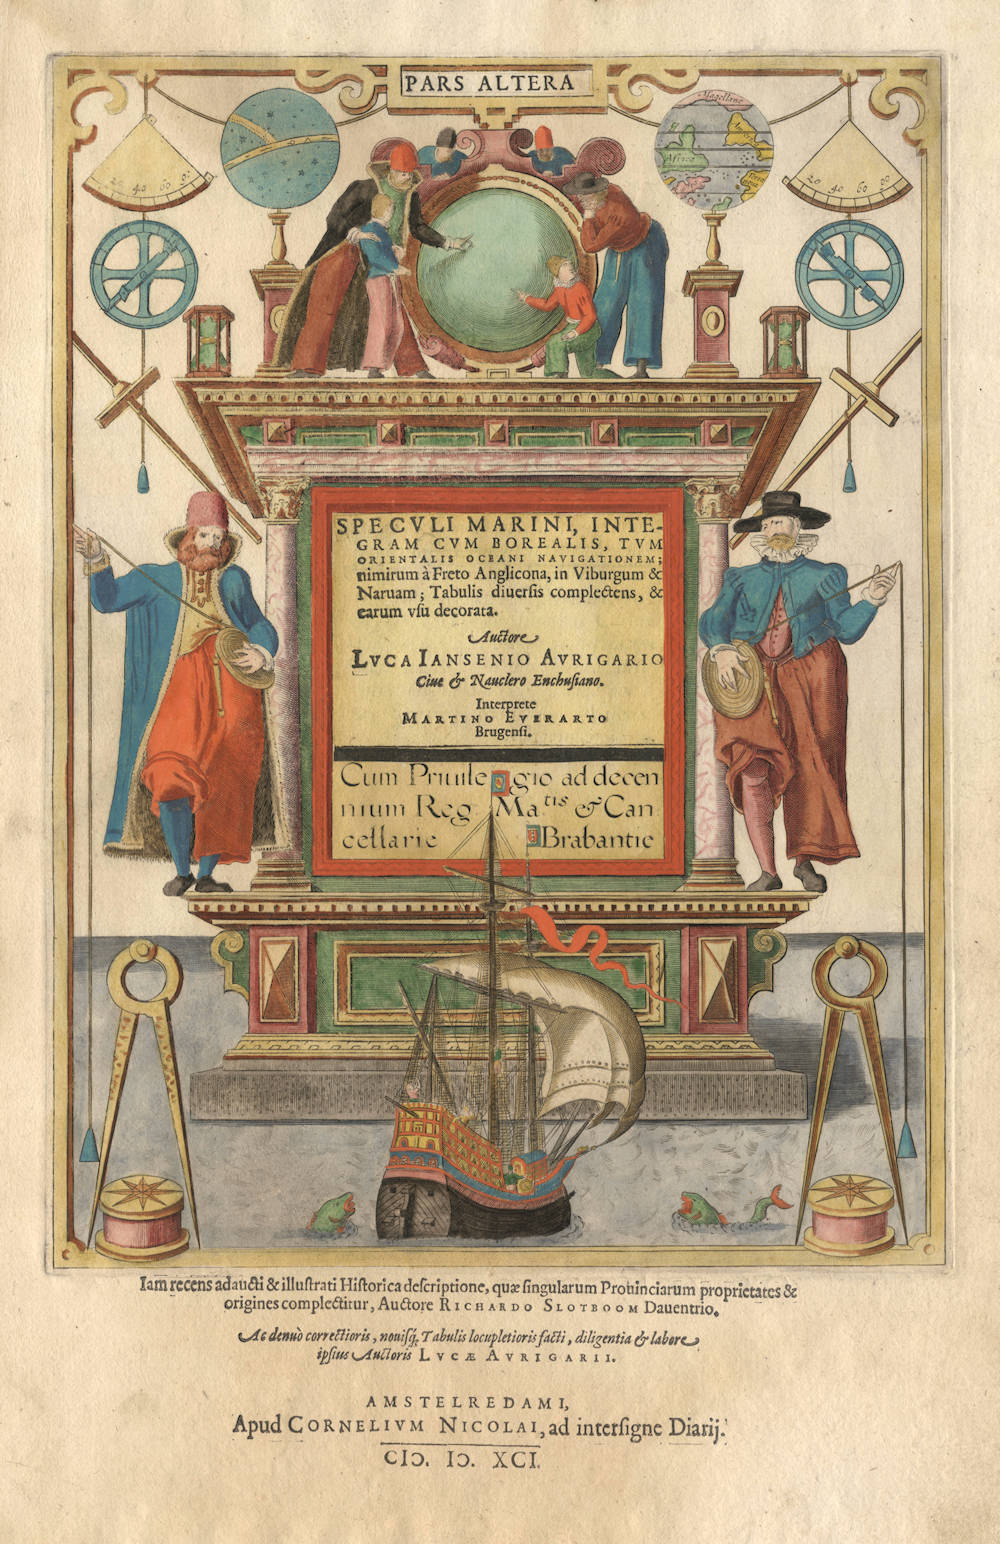 PARS ALTERA
Magellane
Africa
20 40 60 90
20 40 60 90
SPECVLI MARINI, INTE-
GRAM CVM BOREALIS, TVM
ORIENTALIS OCEANI NAVIGATIONEM;
nimirum à Freto Anglicona, in Viburgum &
Naruam; Tabulis diuersis complectens, &
earum vsu decorata.
Auctore
LVCA IANSENIO AVRIGARIO
Ciue & Nauclero Enchusiano.
Interprete
MARTINO EVERARTO
Brugensi.
Cum Priuilegio ad decen
nium Reg. Ma.tis & Can
cellarie Brabantie
Iam recens adaucti & illustrati Historica descriptione, quæ singularum Prouinciarum proprietates &
origines complectitur, Auctore RICHARDO SLOTBOOM Dauentrio.
Ac denuò correctioris, nouisq́; Tabulis locupletioris facti, diligentia & labore
ipsius Auctoris LVCÆ AVRIGARII.
AMSTELREDAMI,
Apud CORNELIVM NICOLAI, ad intersigne Diarij.
CIↃ. IↃ. XCI.